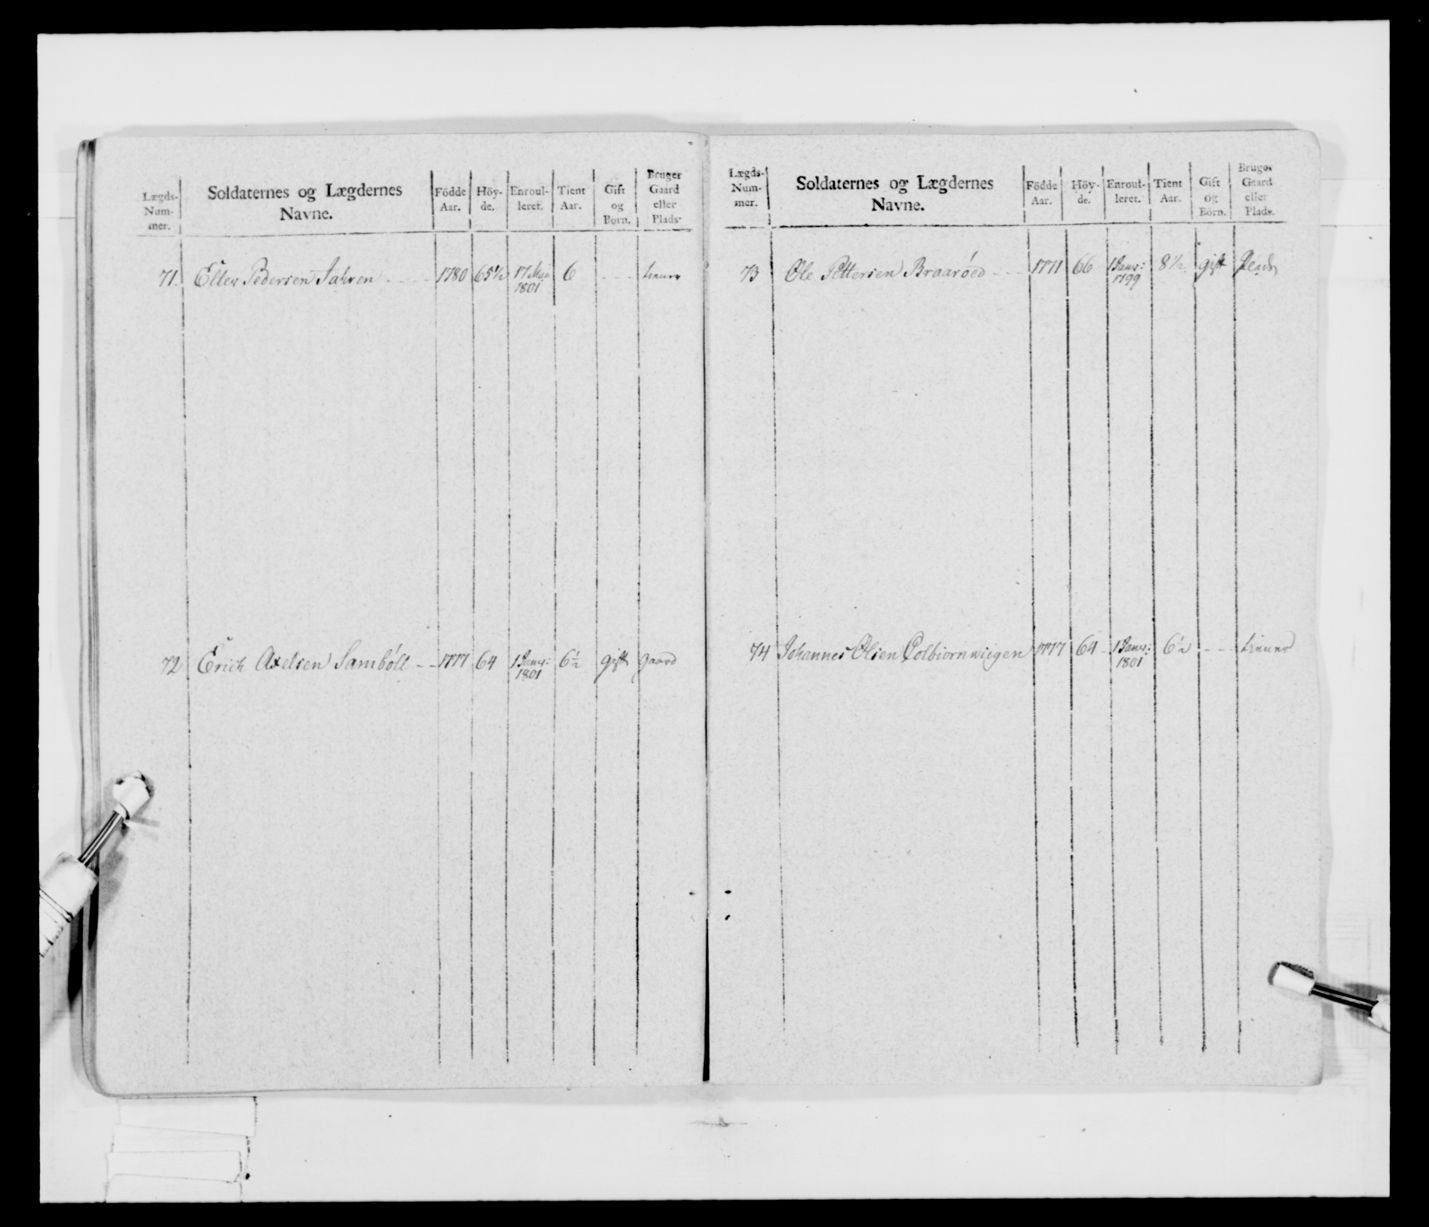 Lægds-Num-mer. Soldaternes og Lægdernes Navne. Födde Aar. Höy-de. Enroul-leret. Tient Aar. Gift og Børn. Bruger Gaard eller Plads.
71. Eller Pedersen Jahren - - - 1780 65½ 1801 6 - - - tiener
72 Erich Axelsen Sambőll - - 1777 64 1 Janr: 1801 6½ gift gaard
Lægds-Num-mer. Soldaternes og Lægdernes Navne. Födde Aar. Höy-de. Enroul-leret. Tient Aar. Gift og Börn. Bruger Gaard eller Plads.
73 Ole Pettersen Braarőed - - - 1771 66 1 Janr: 1799 8½ gift Plads
74 Johannes Olsen Colbiornwiigen 1777 64 - 1 Janr: 1801 6½ - - - tiener